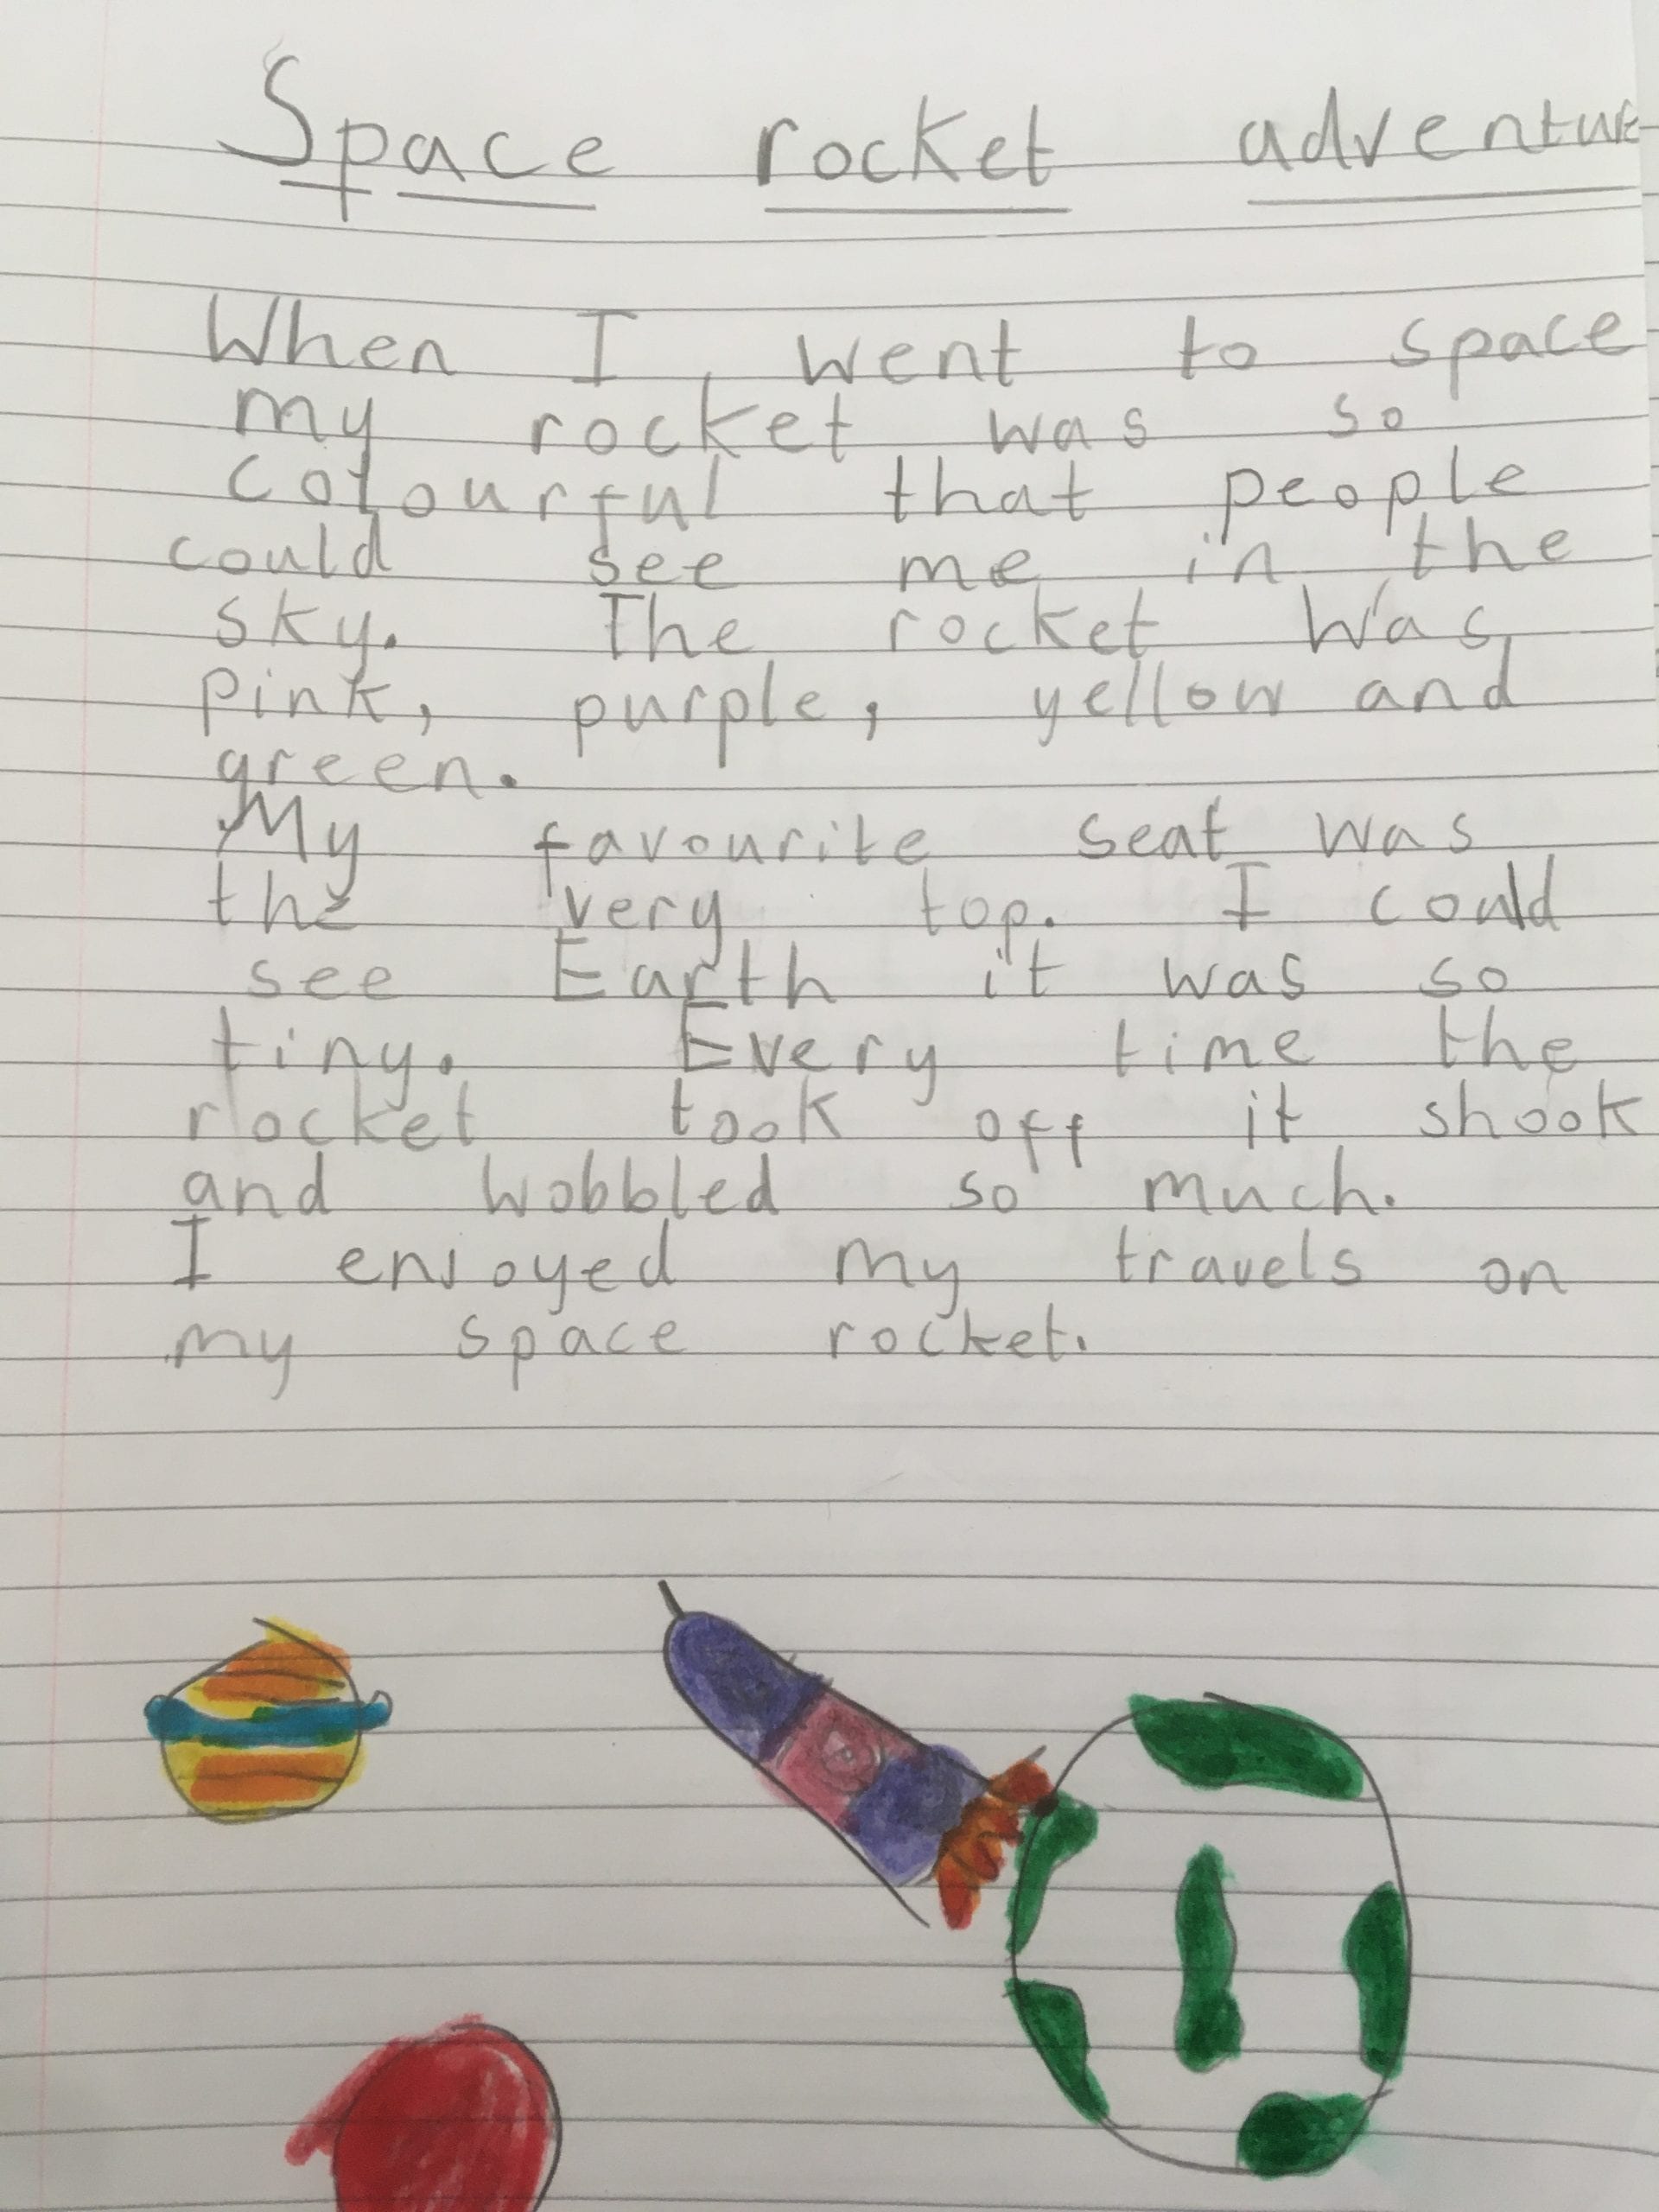 Space rocket adventure
When I went to space
my rocket was so
colourful that people
could see me in the
sky. The rocket was
pink, purple, yellow and
green.
My favourite seat was
the very top. I could
see Earth it was so
tiny. Every time the
rocket took off it shook
and wobbled so much.
I enjoyed my travels on
my space rocket.